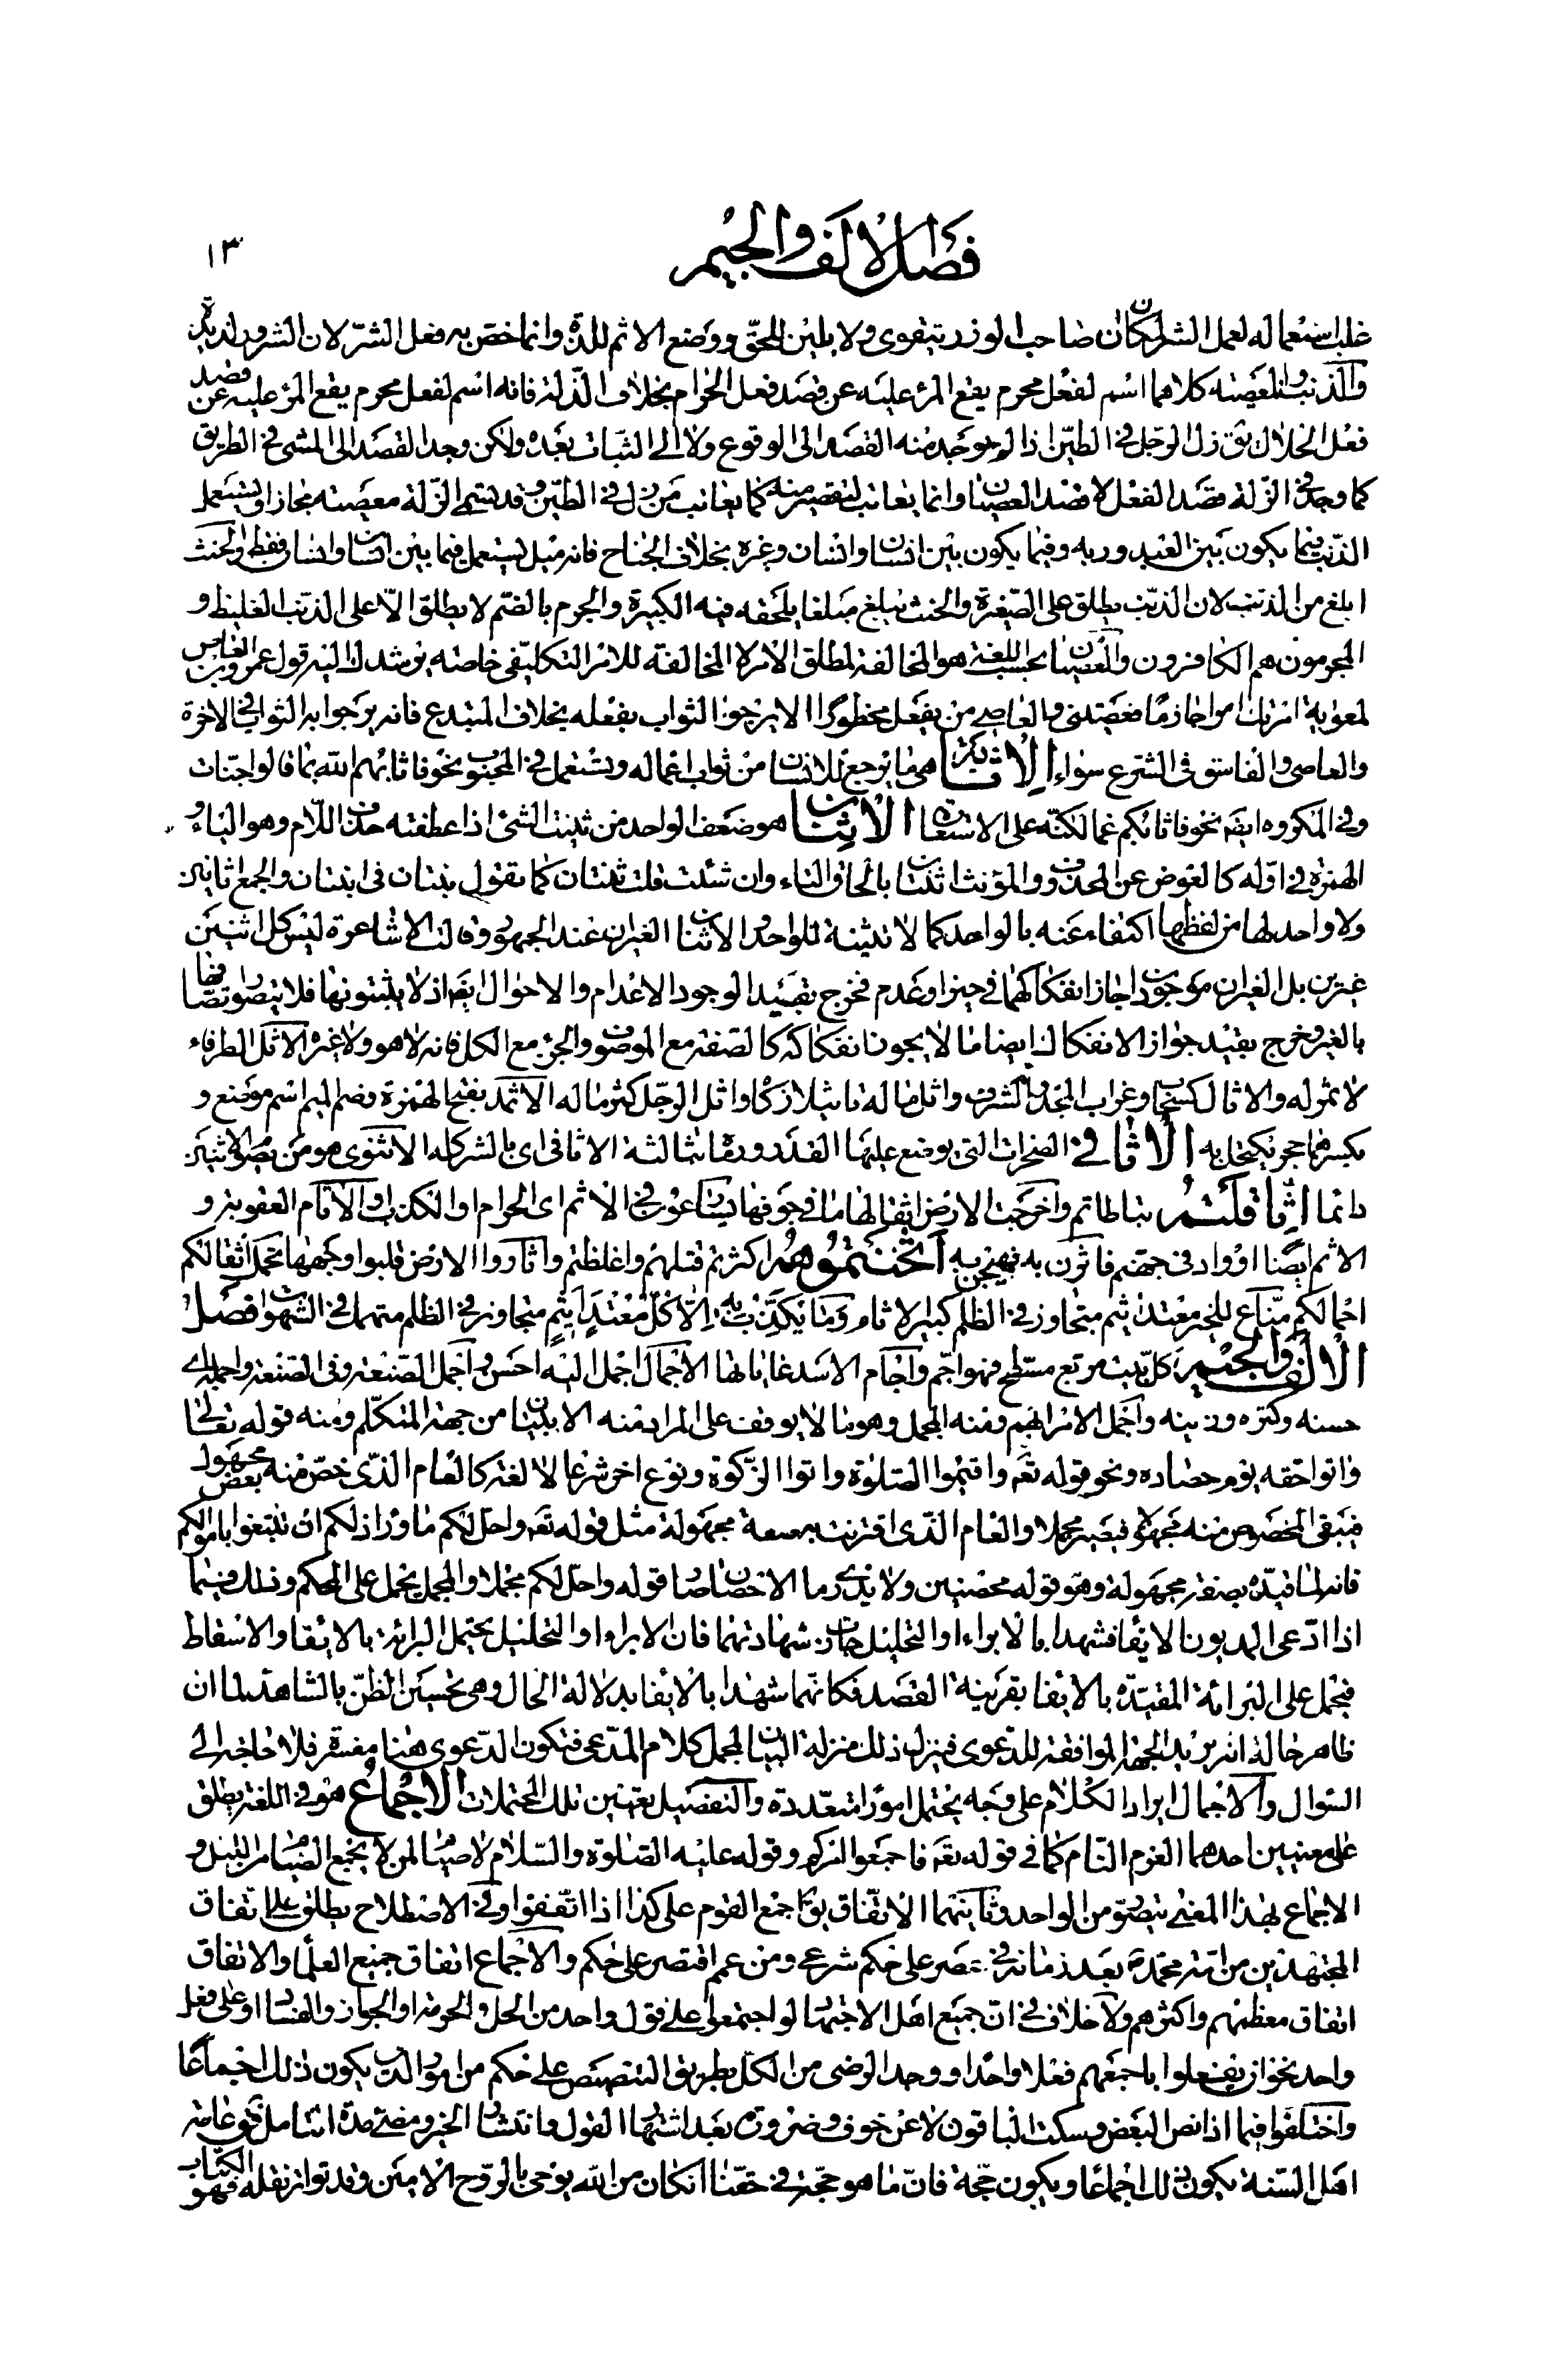 فصل الالف والجيم
١٣
غلب استعماله لعمل الشر لمكان ان صاحب الوزر يتقوى ولا يلين للحق ووضع الاثم للذة وانما خص به فعل الشر لان الشرور لذيذة
والذنب والمعصية كلاهما اسم لفعل محرم يقع المرء عليه عن قصد فعل الحرام بخلاف الذلة فانه اسم لفعل محرم يقع المرء عليه عن قصد
فعل الحلال يق زل الرجل في الطين اذا لم يوجد منه القصد الى الوقوع ولا الى الثبات بعده ولكن وجد القصد الى المشى في الطريق
كما وجد في الزلة قصد الفعل لا قصد العصيان وانما يعاتب لتقصير منه كما يعاتب من زل في الطين وقد تسمى الزلة معصية مجازا ويستعمل
الذنب فيما يكون بين العبد وربه وفيما يكون بين انسان وانسان وغيره بخلاف الجناح فانه ميل يستعمل فيما بين انسان وانسان فقط والحنث
ابلغ من الذنب لان الذنب يطلق على الصغيرة والحنث يبلغ مبلغا يلحقه فيه الكبيرة والجرم بالضم لا يطلق الا على الذنب الغليظ و
المجرمون هم الكافرون والعصيان بحسب اللغة هو المخالفة لمطلق الامر لا المخالفة للامر التكليفي خاصة يرشدك اليه قول عمرو بن العاص
لمعوية امرتك امرا جازما فعصيتني والعاصي من يفعل محظورا لا يرجو الثواب بفعله بخلاف المبتدع فانه يرجو به الثواب في الاخرة
والعاصى والفاسق فى الشرع سواء الاثابة هي ما يرجع للانسان من ثواب اعماله وتستعمل في المحبوب نحو فاثابهم الله بما قالوا جنات
وفي المكروه ايضا نحو فاثابكم غما لكنه على الاستعارة الاثنان هو ضعف الواحد من ثنيت الشئ اذا عطفته حذف اللام وهو الياء و
الهمزة في اوله كالعوض عن المحذوف والمؤنث اثنتان بالحاق التاء وان شئت قلت ثنتان كما تقول بنتان فى ابنتان والجمع اثانين
ولا واحد لها من لفظهما اكتفاء عنه بالواحد كما لا تثنية للواحد والاثنان الغيران عند الجمهور وقالت الاشاعرة ليس كل اثنين
غيرين بل الغيران موجودان جاز انفكاكهما في حيز او عدم فخرج بقيد الوجود الاعدام والاحوال ايضا اذ لا يثبتونها فلا يتصور اتصافها
بالغير وخرج بقيد جواز الانفكاك ايضا ما لا يجوز انفكاكه كالصفة مع الموصوف والجزء مع الكل فانه لا هو ولا غيره الاثل الطرفاء
لا ثمر له والاثال كسحاب وغراب المجد والشرف واثل ماله تاثيلا زكا واثل الرجل كثر ماله الاثمد بفتح الهمزة وضم الميم اسم موضع و
بكسرهما حجر يكتحل به الاثافي الصخرات التي يوضع عليها القدر ورماه بثالثة الاثافي اى بالشر كله الاثنوى هو من يصوم الاثنين
دائما اثاقلتم تباطاتم واخرجت الارض اثقالها ما في جوفها يبيتان عورتي الاثم اى الحرام او الكذب والاثام العقوبة و
الاثم ايضا او واد فى جهنم فاثرن به فهيجن به اثخنتموهم اكثرتم قتلهم واغلظتم واثاروا الارض قلبوا وجهها تحمل اثقالكم
احمالكم مناع للخير معتد اثيم متجاوز في الظلم كبير الاثام وما يكذب به الا كل معتد اثيم متجاوز في الظلم منهمك في الشهوات فصل
الالف والجيم كل بيت مربع مسطح فهو اجم واجام الاسد غاباتها الاجمال اجمل اليه احسن واجمل الصنعة وفى الصنعة واجمله اى
حسنه وكثره وزينه واجمل الامر ابهم ومنه المجمل وهو ما لا يوقف على المراد منه الا ببيان من جهة المتكلم ومنه قوله تعالى
واتوا حقه يوم حصاده ونحو قوله تعه واقيموا الصلوة واتوا الزكوة ونوع اخر شرعا لا لغة كالعام الذى خص منه بعض مجهول
فيبقى المخصوص منه مجهولا فيصير مجملا والعام الذى اقترنت به صفة مجهولة مثل قوله تعه واحل لكم ما وراء ذلكم ان تبتغوا باموالكم
فانه لما قيده بصفة مجهولة وهو قوله محصنين ولا يدرى ما الاحصان صار قوله واحل لكم مجملا والمجمل يحمل على المحكم وذلك فيما
اذا ادعى المديون الايفاء فشهدا بالابراء او التحليل جازت شهادتهما فان الابراء او التحليل يحتمل البرائة بالايفاء والاسقاط
فيحمل على البرائة المقيدة بالايفاء بقرينة القصد فكانهما شهدا بالايفاء بدلالة الحال وهى تحسين الظن بالشاهد لما ان
ظاهر حاله انه يريد الجهة الموافقة للدعوى فينزل ذلك منزلة البيان لمجمل كلام المدعى فتكون الدعوى هنا مفسرة فلا حاجة الى
السؤال والاجمال ايراد الكلام على وجه يحتمل امورا متعددة والتفصيل تعيين تلك المحتملات الاجماع هو في اللغة يطلق
على معنيين احدهما العزم التام كما في قوله تعه فاجمعوا امركم وقوله عليه الصلوة والسلام لا صيام لمن لا يجمع الصيام من الليل و
الاجماع بهذا المعنى يتصور من الواحد وثانيهما الاتفاق يق اجمع القوم على كذا اذا اتفقوا وفي الاصطلاح يطلق على اتفاق
المجتهدين من امة محمد بعد زمانه في عصر على حكم شرعي ومن عمم اقتصر على حكم والاجماع اتفاق جميع العلماء والاتفاق
اتفاق معظمهم واكثرهم ولا خلاف في ان جميع اهل الاجتهاد لو اجتمعوا على قول واحد من الحل والحرمة او الجواز والفساد او على فعل
واحد نحو ان يفعلوا باجمعهم فعلا واحدا ووجد الرضى من الكل بطريق التنصيص على حكم من امور الدين يكون ذلك اجماعا
واختلفوا فيما اذا نص البعض وسكت الباقون لا عن خوف وضرورة بعد اشتهار القول وانتشار الخبر ومضى مدة التامل فقال عامة
اهل السنة يكون ذلك اجماعا ويكون حجة فان ما هو حجة في حقنا ان كان من الله يوحى بالروح الامين وقد تواتر نقله فهو الكتاب